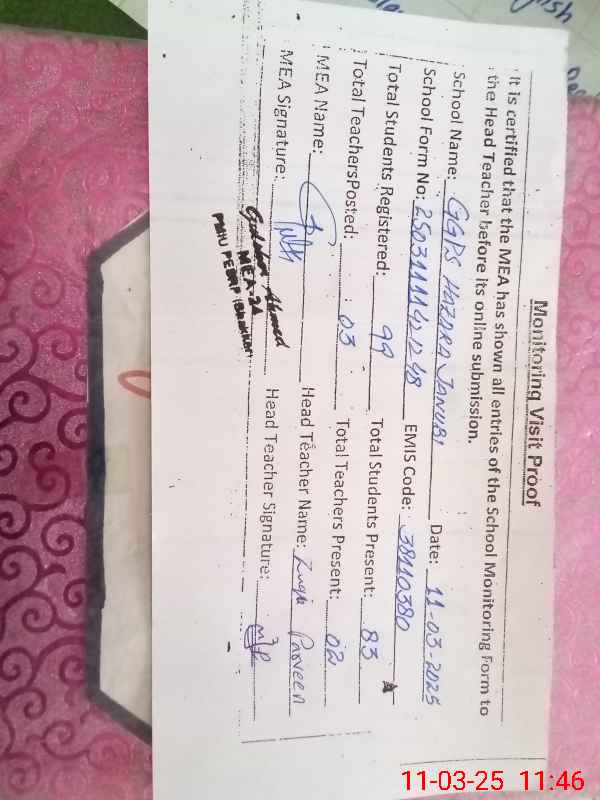 Monitoring Visit Proof
It is certified that the MEA has shown all entries of the School Monitoring Form to
the Head Teacher before its online submission.
School Name: GGPS HAZARA JANUBI Date: 11-03-2025
School Form No: EMIS Code: 38110380
Total Students Registered: 99 Total Students Present: 83
Total TeachersPosted: 03 Total Teachers Present: 02
MEA Name: Head Teacher Name: Parveen
MEA Signature: Head Teacher Signature:
Ahmed
MEA-24
11-03-25 11:46